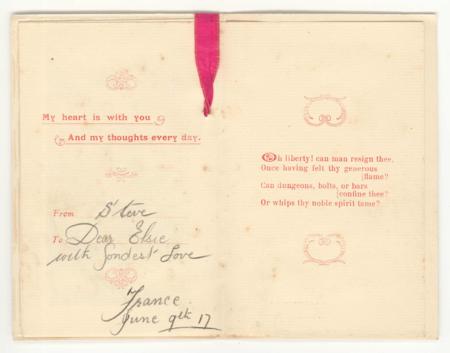 My heart is with you
And my thoughts every day.
From Steve
To Dear Elsie
with fondest Love
France
June 9th 17
Oh liberty! can man resign thee,
Once having felt thy generous
[flame?
Can dungeons, bolts, or bars
[confine thee?
Or whips thy noble spirit tame?